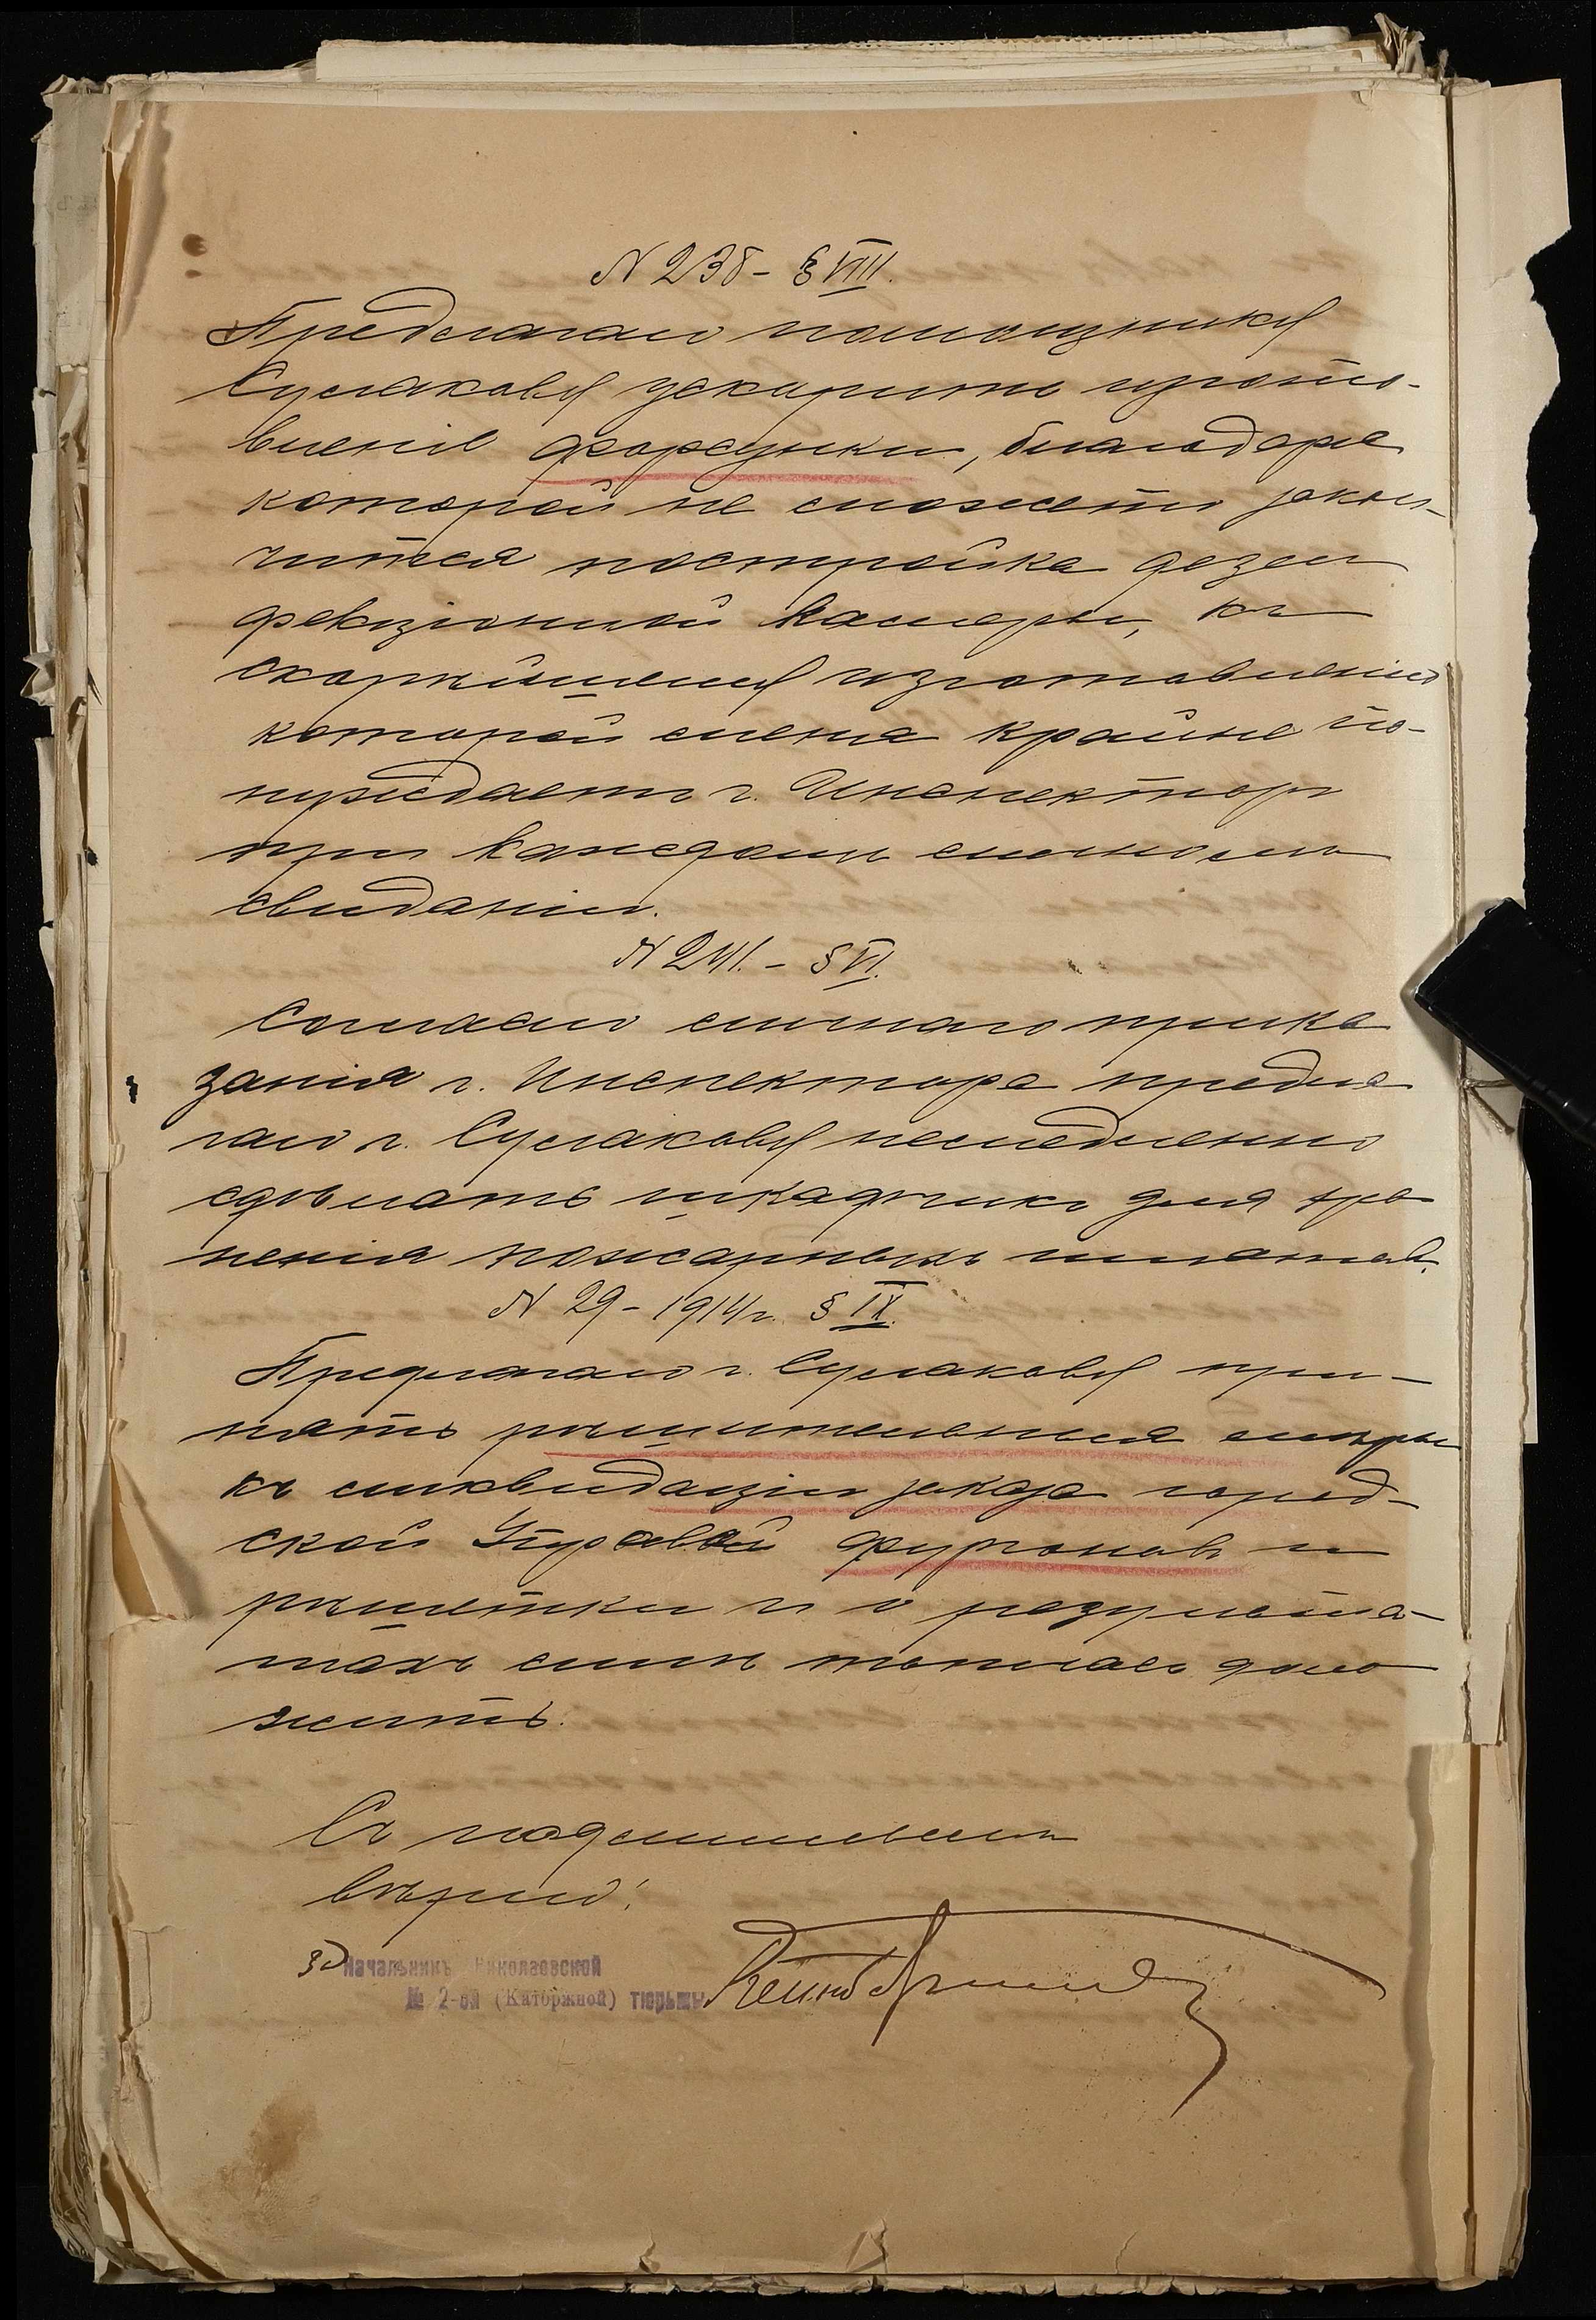 N 238 - § VIII.
Предлагаю помощнику
Суслакову ускорить изгото-
вленіе форсунки, благодаря
которой не сможетъ закон-
читься постройка дезен
фекціонной камеры, къ
скорѣйшему изготовленію
которой меня крайне по-
нуждаетъ г. Инспекторъ
при каждомъ личномъ
свиданіи.
N 241. - § VI.
Согласно личнаго прика
занія г. Инспектора предла
гаю г. Суслакову немедленно
сдѣлать шкафчикъ для хра
ненія пожарныхъ
N 29 - 1914 г. § IX.
Предлагаю г. Суслакову при-
нять рѣшительныя мѣры
къ ликвидаціи заказа город-
ской Управой фургоновъ и
рѣшетки и о результа-
тахъ мнѣ доло
жить.
Съ подлиннымъ
вѣрно:
Зд Начальникъ Николаевской
№ 2-ой (Каторжной) тюрьмы